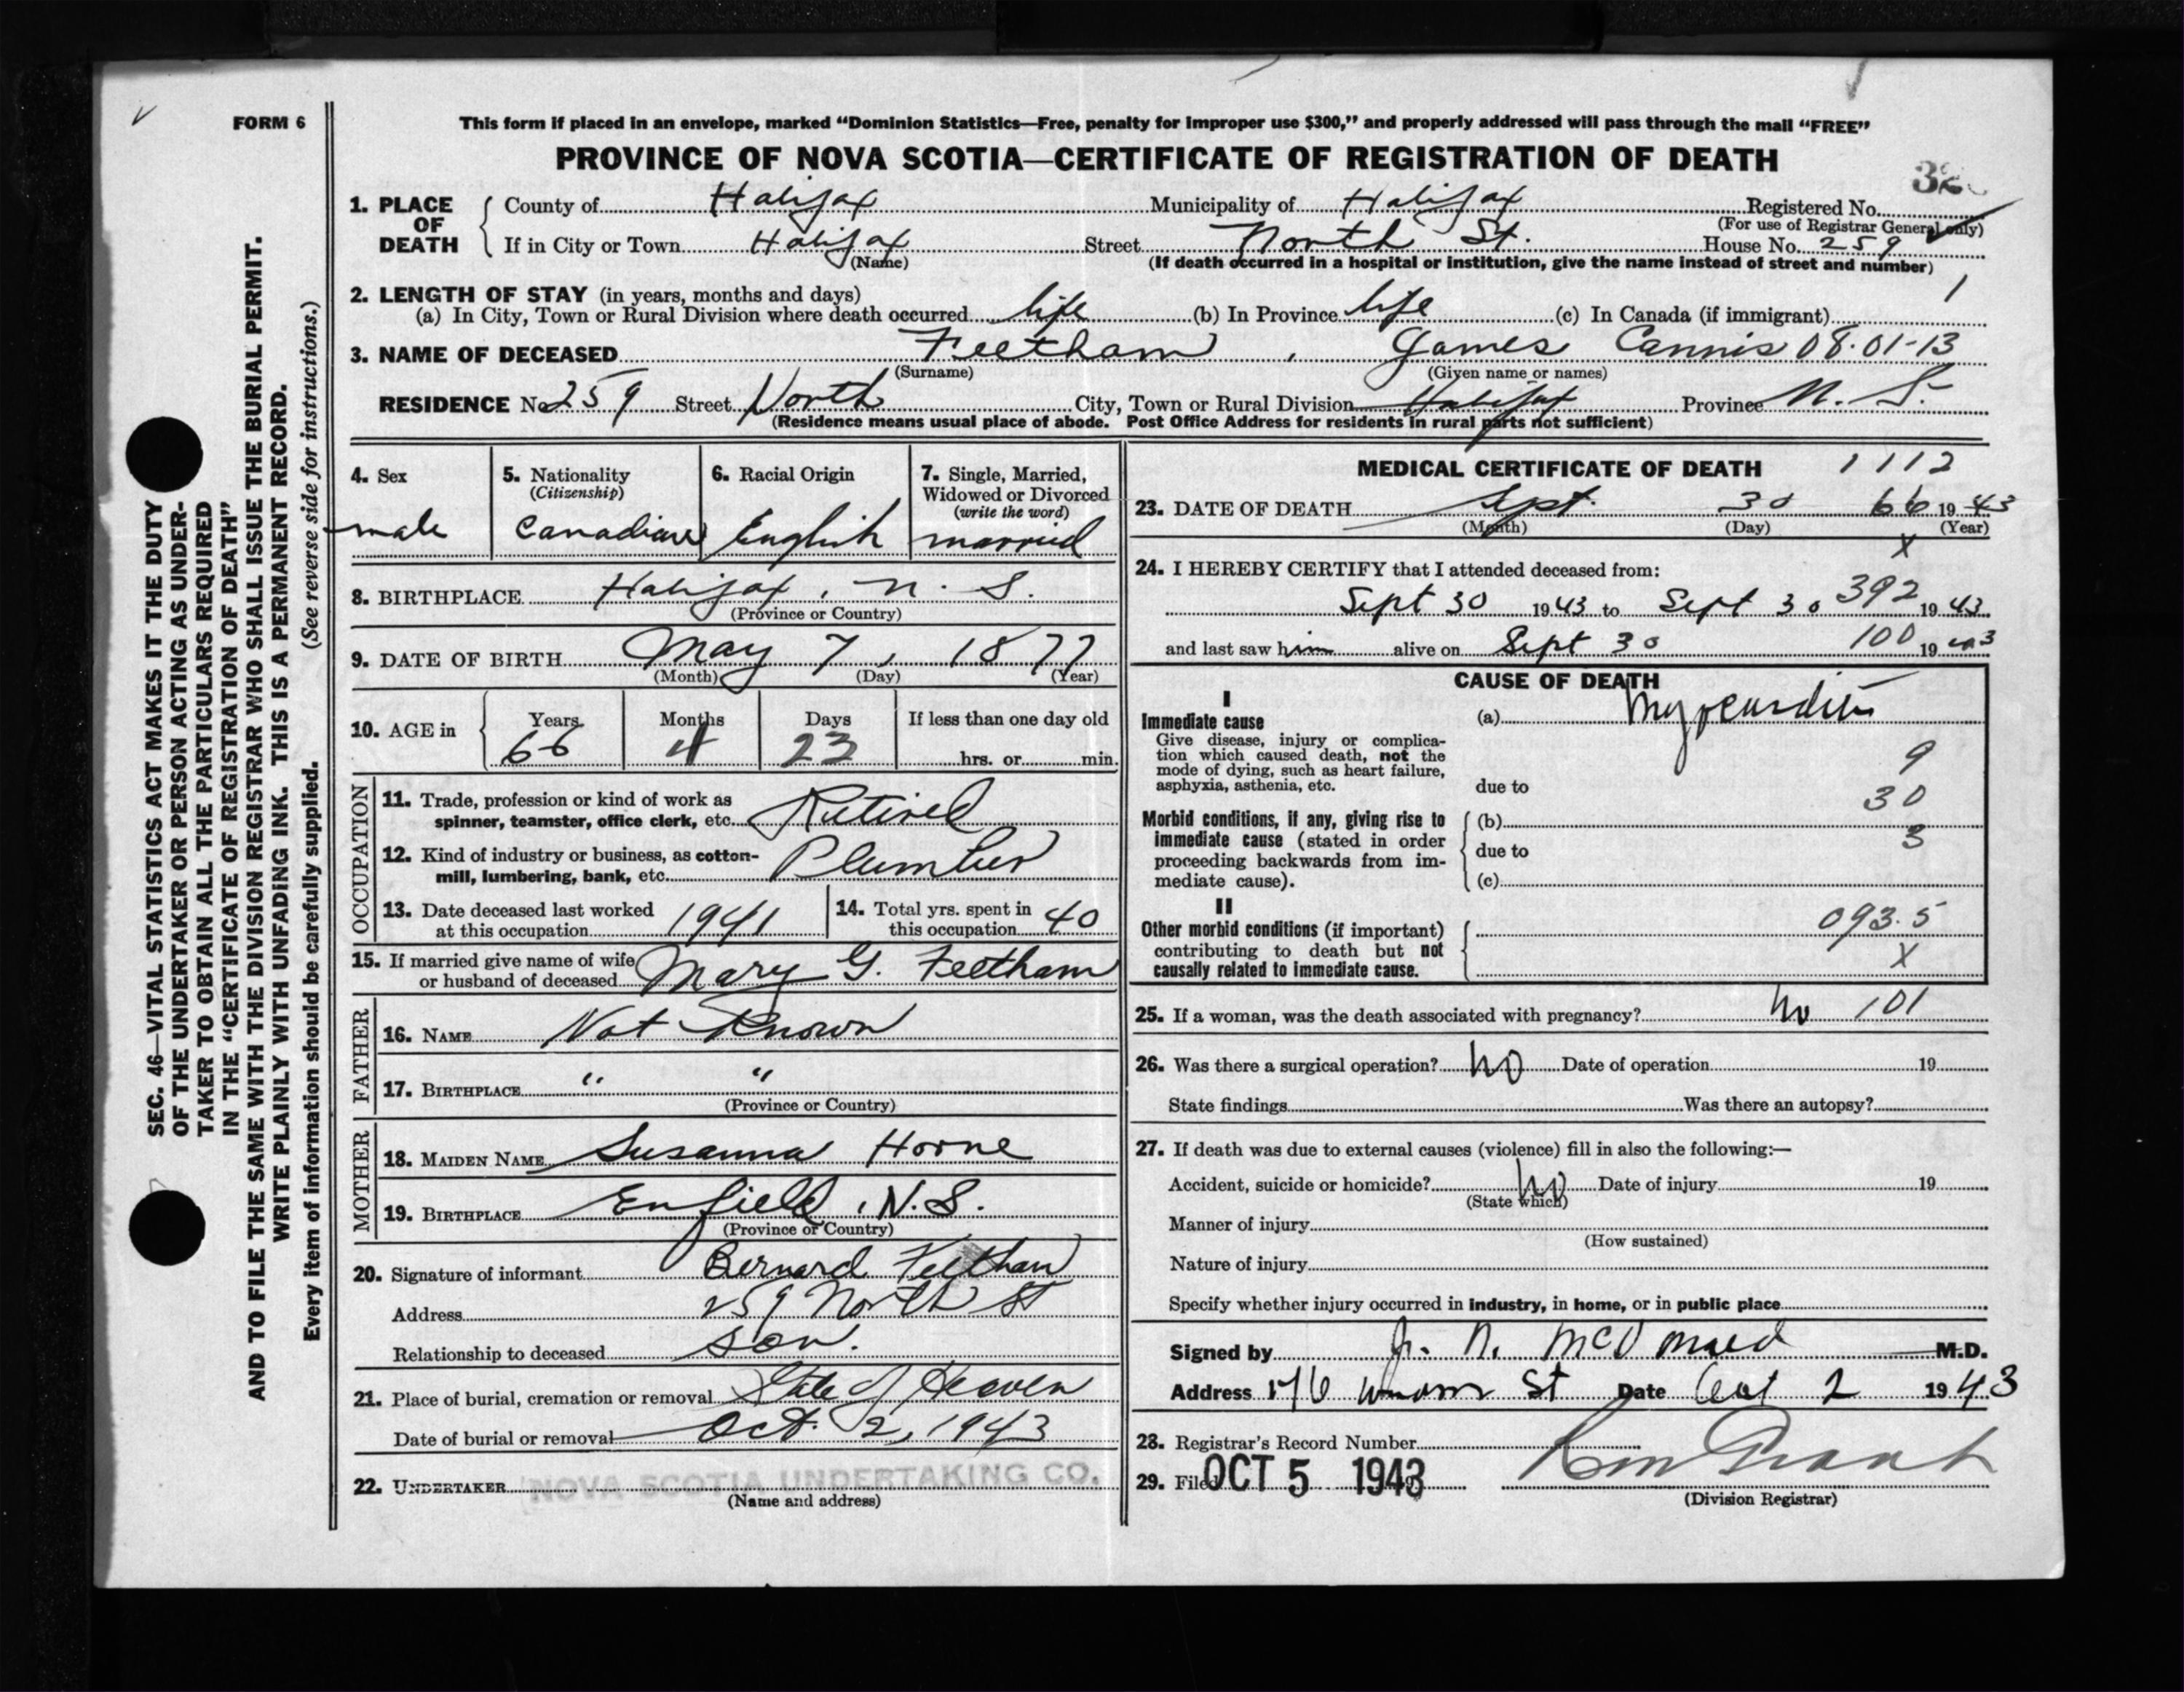 FORM 6
This form if placed in an envelope, marked "Dominion Statistics—Free, penalty for improper use $300," and properly addressed will pass through the mail "FREE"
PROVINCE OF NOVA SCOTIA—CERTIFICATE OF REGISTRATION OF DEATH
1. PLACE OF DEATH
County of Halifax Municipality of Halifax Registered No.
(For use of Registrar General only)
If in City or Town Halifax Street North St. House No. 259
(Name) (If death occurred in a hospital or institution, give the name instead of street and number)
2. LENGTH OF STAY (in years, months and days) 1
(a) In City, Town or Rural Division where death occurred life (b) In Province life (c) In Canada (if immigrant)
3. NAME OF DECEASED Feetham, James Cannis 08.01-13
(Surname) (Given name or names)
RESIDENCE No. 259 Street North City, Town or Rural Division Halifax Province N. S.
(Residence means usual place of abode. Post Office Address for residents in rural parts not sufficient)
4. Sex
male
5. Nationality
(Citizenship)
Canadian
6. Racial Origin
English
7. Single, Married,
Widowed or Divorced
(write the word)
married
8. BIRTHPLACE Halifax, N. S.
(Province or Country)
9. DATE OF BIRTH May 7, 1877
(Month) (Day) (Year)
10. AGE in Years Months Days If less than one day old
66 4 23 hrs. or min.
OCCUPATION
11. Trade, profession or kind of work as
spinner, teamster, office clerk, etc. Retired
12. Kind of industry or business, as cotton-
mill, lumbering, bank, etc. Plumber
13. Date deceased last worked
at this occupation 1941
14. Total yrs. spent in
this occupation 40
15. If married give name of wife
or husband of deceased Mary G. Feetham
FATHER
16. NAME Not Known
17. BIRTHPLACE " "
(Province or Country)
MOTHER
18. MAIDEN NAME Susanna Horne
19. BIRTHPLACE Enfield, N.S.
(Province or Country)
20. Signature of informant Bernard Feetham
Address 259 North St
Relationship to deceased son.
21. Place of burial, cremation or removal Gate of Heaven
Date of burial or removal Oct. 2, 1943
22. UNDERTAKER NOVA SCOTIA UNDERTAKING CO.
(Name and address)
MEDICAL CERTIFICATE OF DEATH 1112
23. DATE OF DEATH Sept. 30 66 19 43
(Month) (Day) (Year)
X
24. I HEREBY CERTIFY that I attended deceased from:
Sept 30 1943 to Sept 30 392 19 43
and last saw him alive on Sept 30 100 19 43
CAUSE OF DEATH
I
Immediate cause
Give disease, injury or complica-
tion which caused death, not the
mode of dying, such as heart failure,
asphyxia, asthenia, etc.
(a) Myocarditis
9
due to
30
Morbid conditions, if any, giving rise to
immediate cause (stated in order
proceeding backwards from im-
mediate cause).
(b)
3
due to
(c)
II
Other morbid conditions (if important)
contributing to death but not
causally related to immediate cause.
093.5
X
25. If a woman, was the death associated with pregnancy? no 101
26. Was there a surgical operation? no Date of operation 19
State findings Was there an autopsy?
27. If death was due to external causes (violence) fill in also the following:—
Accident, suicide or homicide? no Date of injury 19
(State which)
Manner of injury
(How sustained)
Nature of injury
Specify whether injury occurred in industry, in home, or in public place
Signed by McDonald M.D.
Address 176 St Date Oct 2 1943
28. Registrar's Record Number
29. Filed OCT 5 1943
(Division Registrar)
SEC. 46—VITAL STATISTICS ACT MAKES IT THE DUTY
OF THE UNDERTAKER OR PERSON ACTING AS UNDER-
TAKER TO OBTAIN ALL THE PARTICULARS REQUIRED
IN THE "CERTIFICATE OF REGISTRATION OF DEATH"
AND TO FILE THE SAME WITH THE DIVISION REGISTRAR WHO SHALL ISSUE THE BURIAL PERMIT.
WRITE PLAINLY WITH UNFADING INK. THIS IS A PERMANENT RECORD.
Every item of information should be carefully supplied. (See reverse side for instructions.)